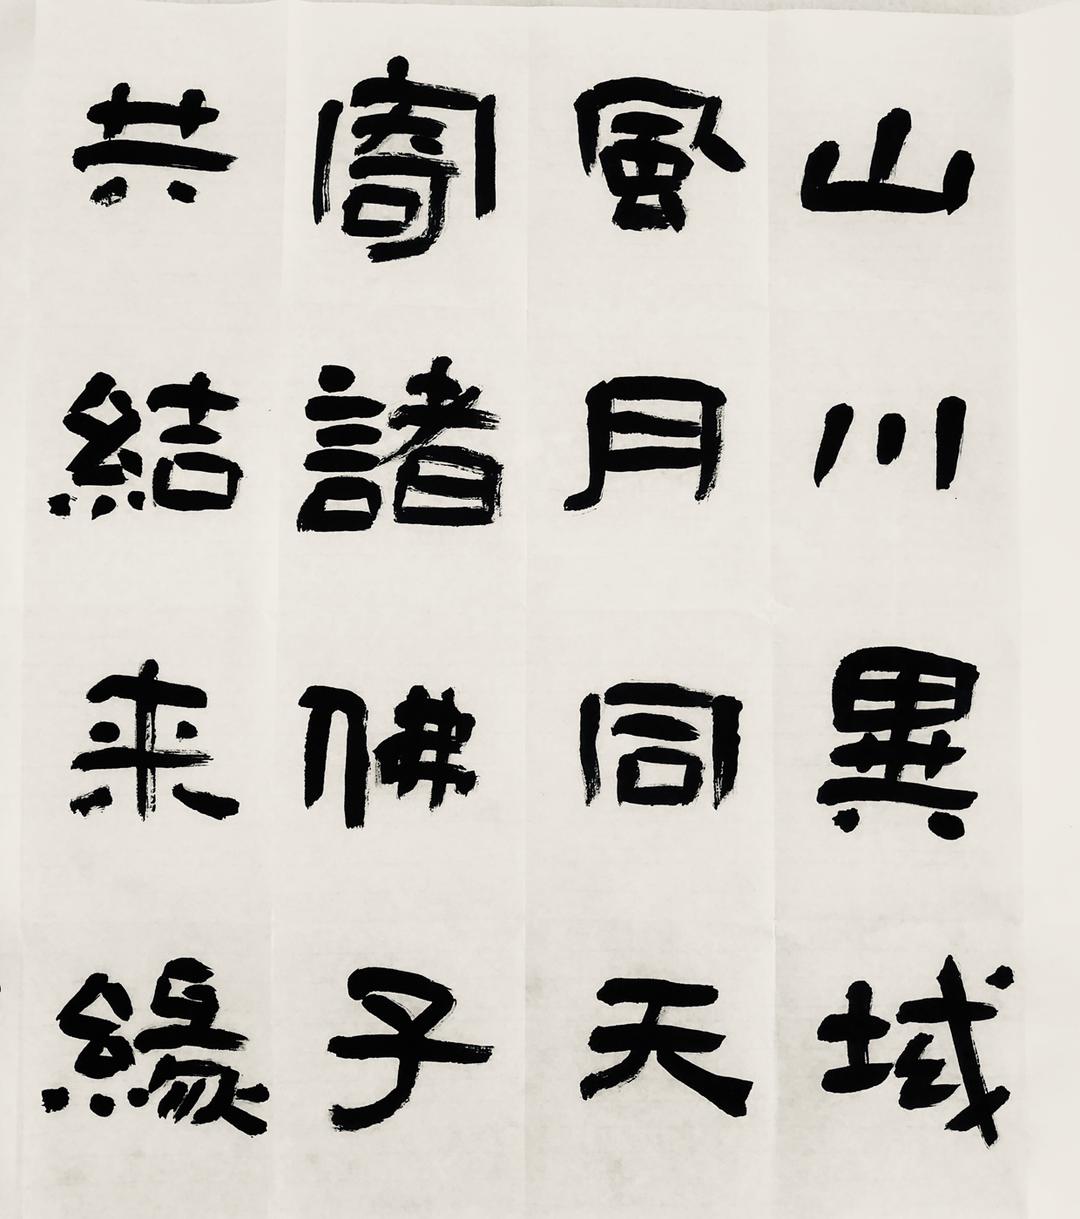 山川異域
風月同天
寄諸佛子
共結来緣